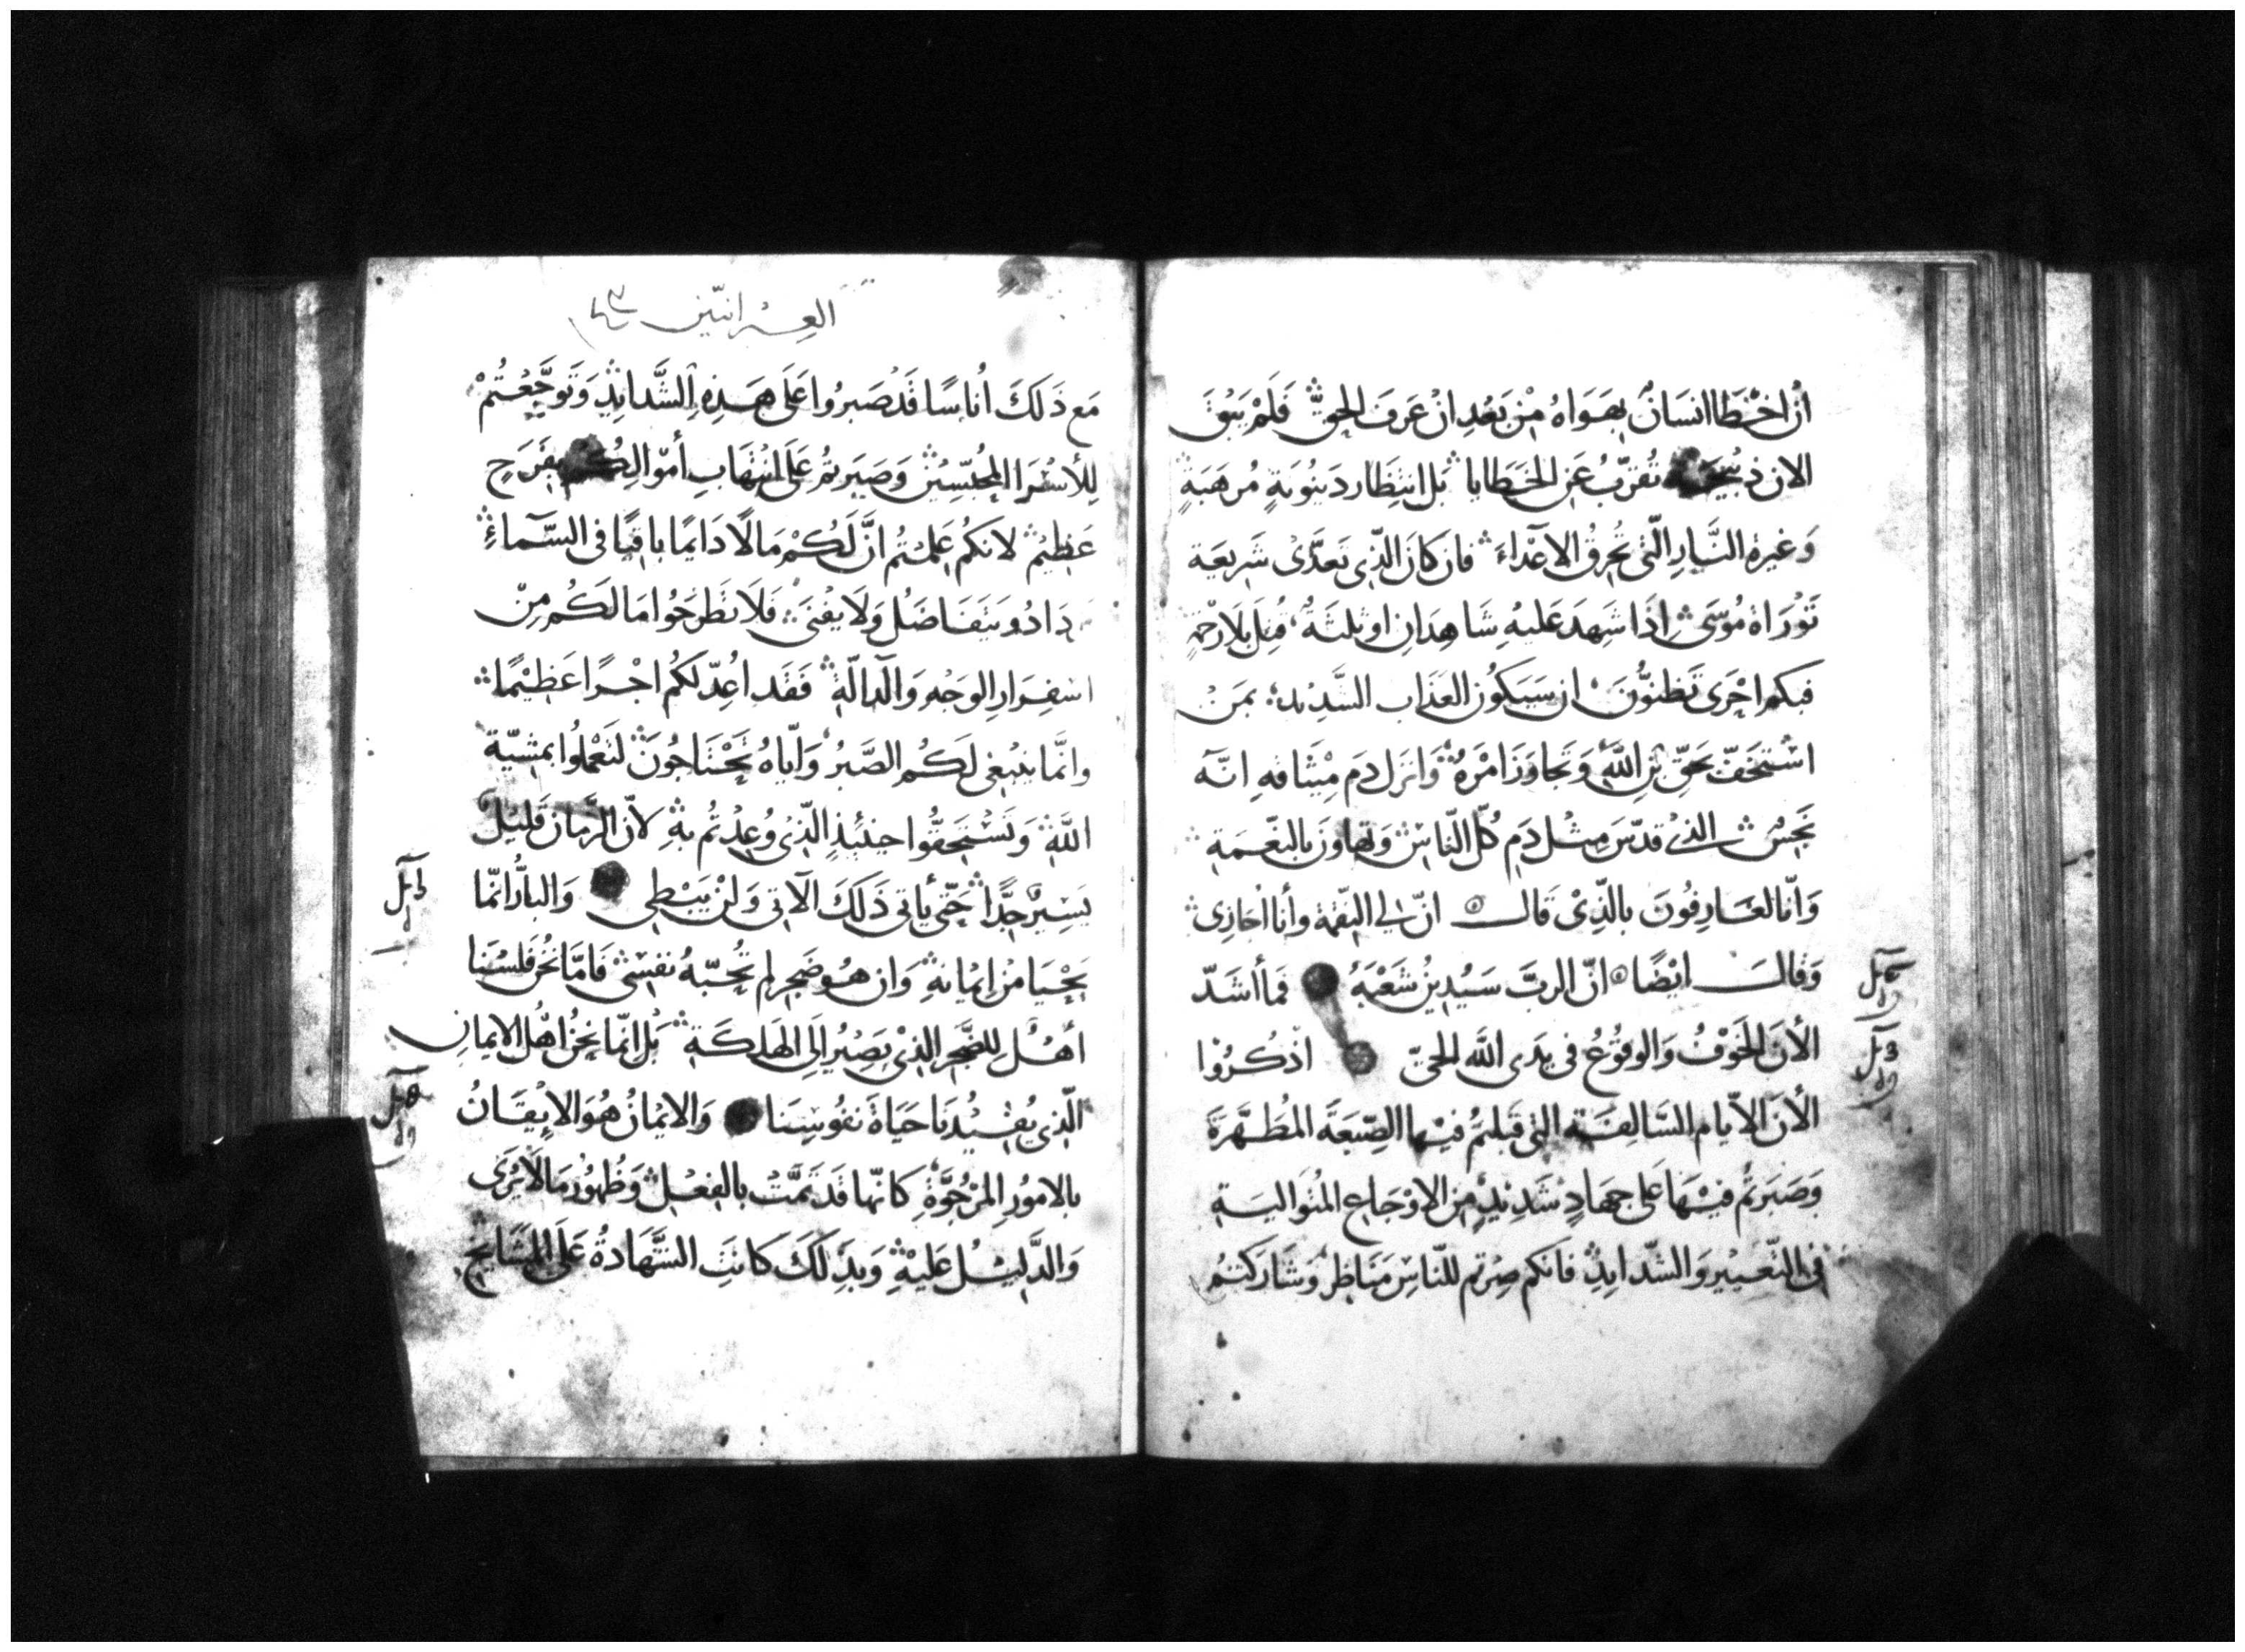 اِنْ اخْطَا انسَانٌ بِهَوَاهُ مِنْ بَعْدِ انْ عَرَفَ الحَقَّ فَلَمْ يَبْقَ
الان ذبيحة تُقرَّبُ عَنِ الخَطَايا بَل انتِظَار دَيْنُونَةٍ مُرهِبَةٍ
وَغيرة النَّارِ الّتى تُحرِقُ الاَعْدَاءَ فان كانَ الّذِى تَعدَّى شَرِيعَة
تَوْرَاة مُوْسَى اِذَا شَهِدَ عَليهِ شَاهِدَانِ او ثلثَةٌ قُتِلَ بلَا رَحْمَةٍ
فبكم احْرَى تَظنُّونَ ان سَيَكُون العَذَاب الشَّدِيْد بمَنْ
اسْتَخَفَّ بحَقِّ بْنِ اللَّهِ وَتَجاوَزَ امْرَهُ وَانزَل دَم مِيْثَاقهِ انَّه
نَجِسٌ الذى قدّسَ مِثل دَمِ كُلِّ النَّاسِ وَتهاوَنَ بالنّعمَةِ
وَانّا لعَارِفُونَ بالَّذِىْ قَالَ انّ لي النقمَة وأنا اجَازِى
وَقَالَ ايْضًا انّ الربَّ سَيُدِيْنُ شَعْبَهُ فَمَا أشَدّ
الأنَ الخَوْفُ وَالوقُوْعُ فى يدَى اللَّه الحىّ اذْكُرُوْا
الأنَ الاَيام السَّالِفَة التى قَبلتمُ فيْها الصِّبغَةَ المُطَهَّرَةَ
وَصَبَرتُم فيْهَا عَلى جهَادٍ شَدِيْدٍ مِنَ الاوْجَاع المتُوَاليَةِ
فى التّعيير وَالشّدايدِ فانكم صِرْتم للنّاسِ مَنَاظِرُ وَشَارَكتمُ
العبرانيّين
مَع ذَلكَ اُناسًا قَدْ صَبرُوا عَلَى هَذِهِ الشَّدَايدِ وَتَوجَّعْتُمْ
لِلأسْرَا المحُبَّسِيْنَ وَصَبَرتمُ عَلَى انتهَابِ أموَالِكُم بفَرَحٍ
عَظِيْم لانكمُ عَلِمْتُم انَّ لَكُمْ مَالًا دَايمًا باقِيًا فى السَّمآءِ
يَتَفَاضَل وَلَا يفْنَى فَلَا تَطْرَحُوا مَا لَكُم مِنْ
اسفِرَارِ الوَجْهِ وَالدالّةِ فَقَد اُعِدّ لَكُم اجْرًا عَظِيْمًا
وانَّما ينبَغى لَكُم الصَّبرُ وَايّاهُ تَحْتَاجُونَ لتَعْمَلُوا بمشيّة
اللَّهِ وَتَسْتَحقُّوا حِيْنَئِذٍ الّذِى وُعِدْتُم بهِ لاَنّ الزَّمانَ قَليْل
يَسِيرٌ جِدًّا حَتّى يأتى ذَلكَ الاَتِى وَلنْ يبْطِى وَالبارُّ انّمَا
يَحْيَا مِنْ اِيْمانهِ وَان هُو ضَجِر لم تُحبّهُ نفسِى فَامّا نَحْنُ فَلسْنَا
أهْل للضَّجر الذِى يَصِيْرُ الَى الهَلكَةِ بَل انّما نَحْنُ اهْلُ الايمانِ
الّذِى يُفيْدُنَا حَيَاةَ نفُوْسِنَا وَالايْمَانُ هُوَ الايْقَانُ
بالامُوْرِ المَرْجُوَّةِ كانّها قَدْ تَمَّتْ بالفِعْلِ وَظُهُوْر مَا لَا يُرَى
وَالدَّلِيْل عَليْهِ وَبذَلكَ كانَتِ الشَّهَادَةُ عَلَى المَشَايخِ